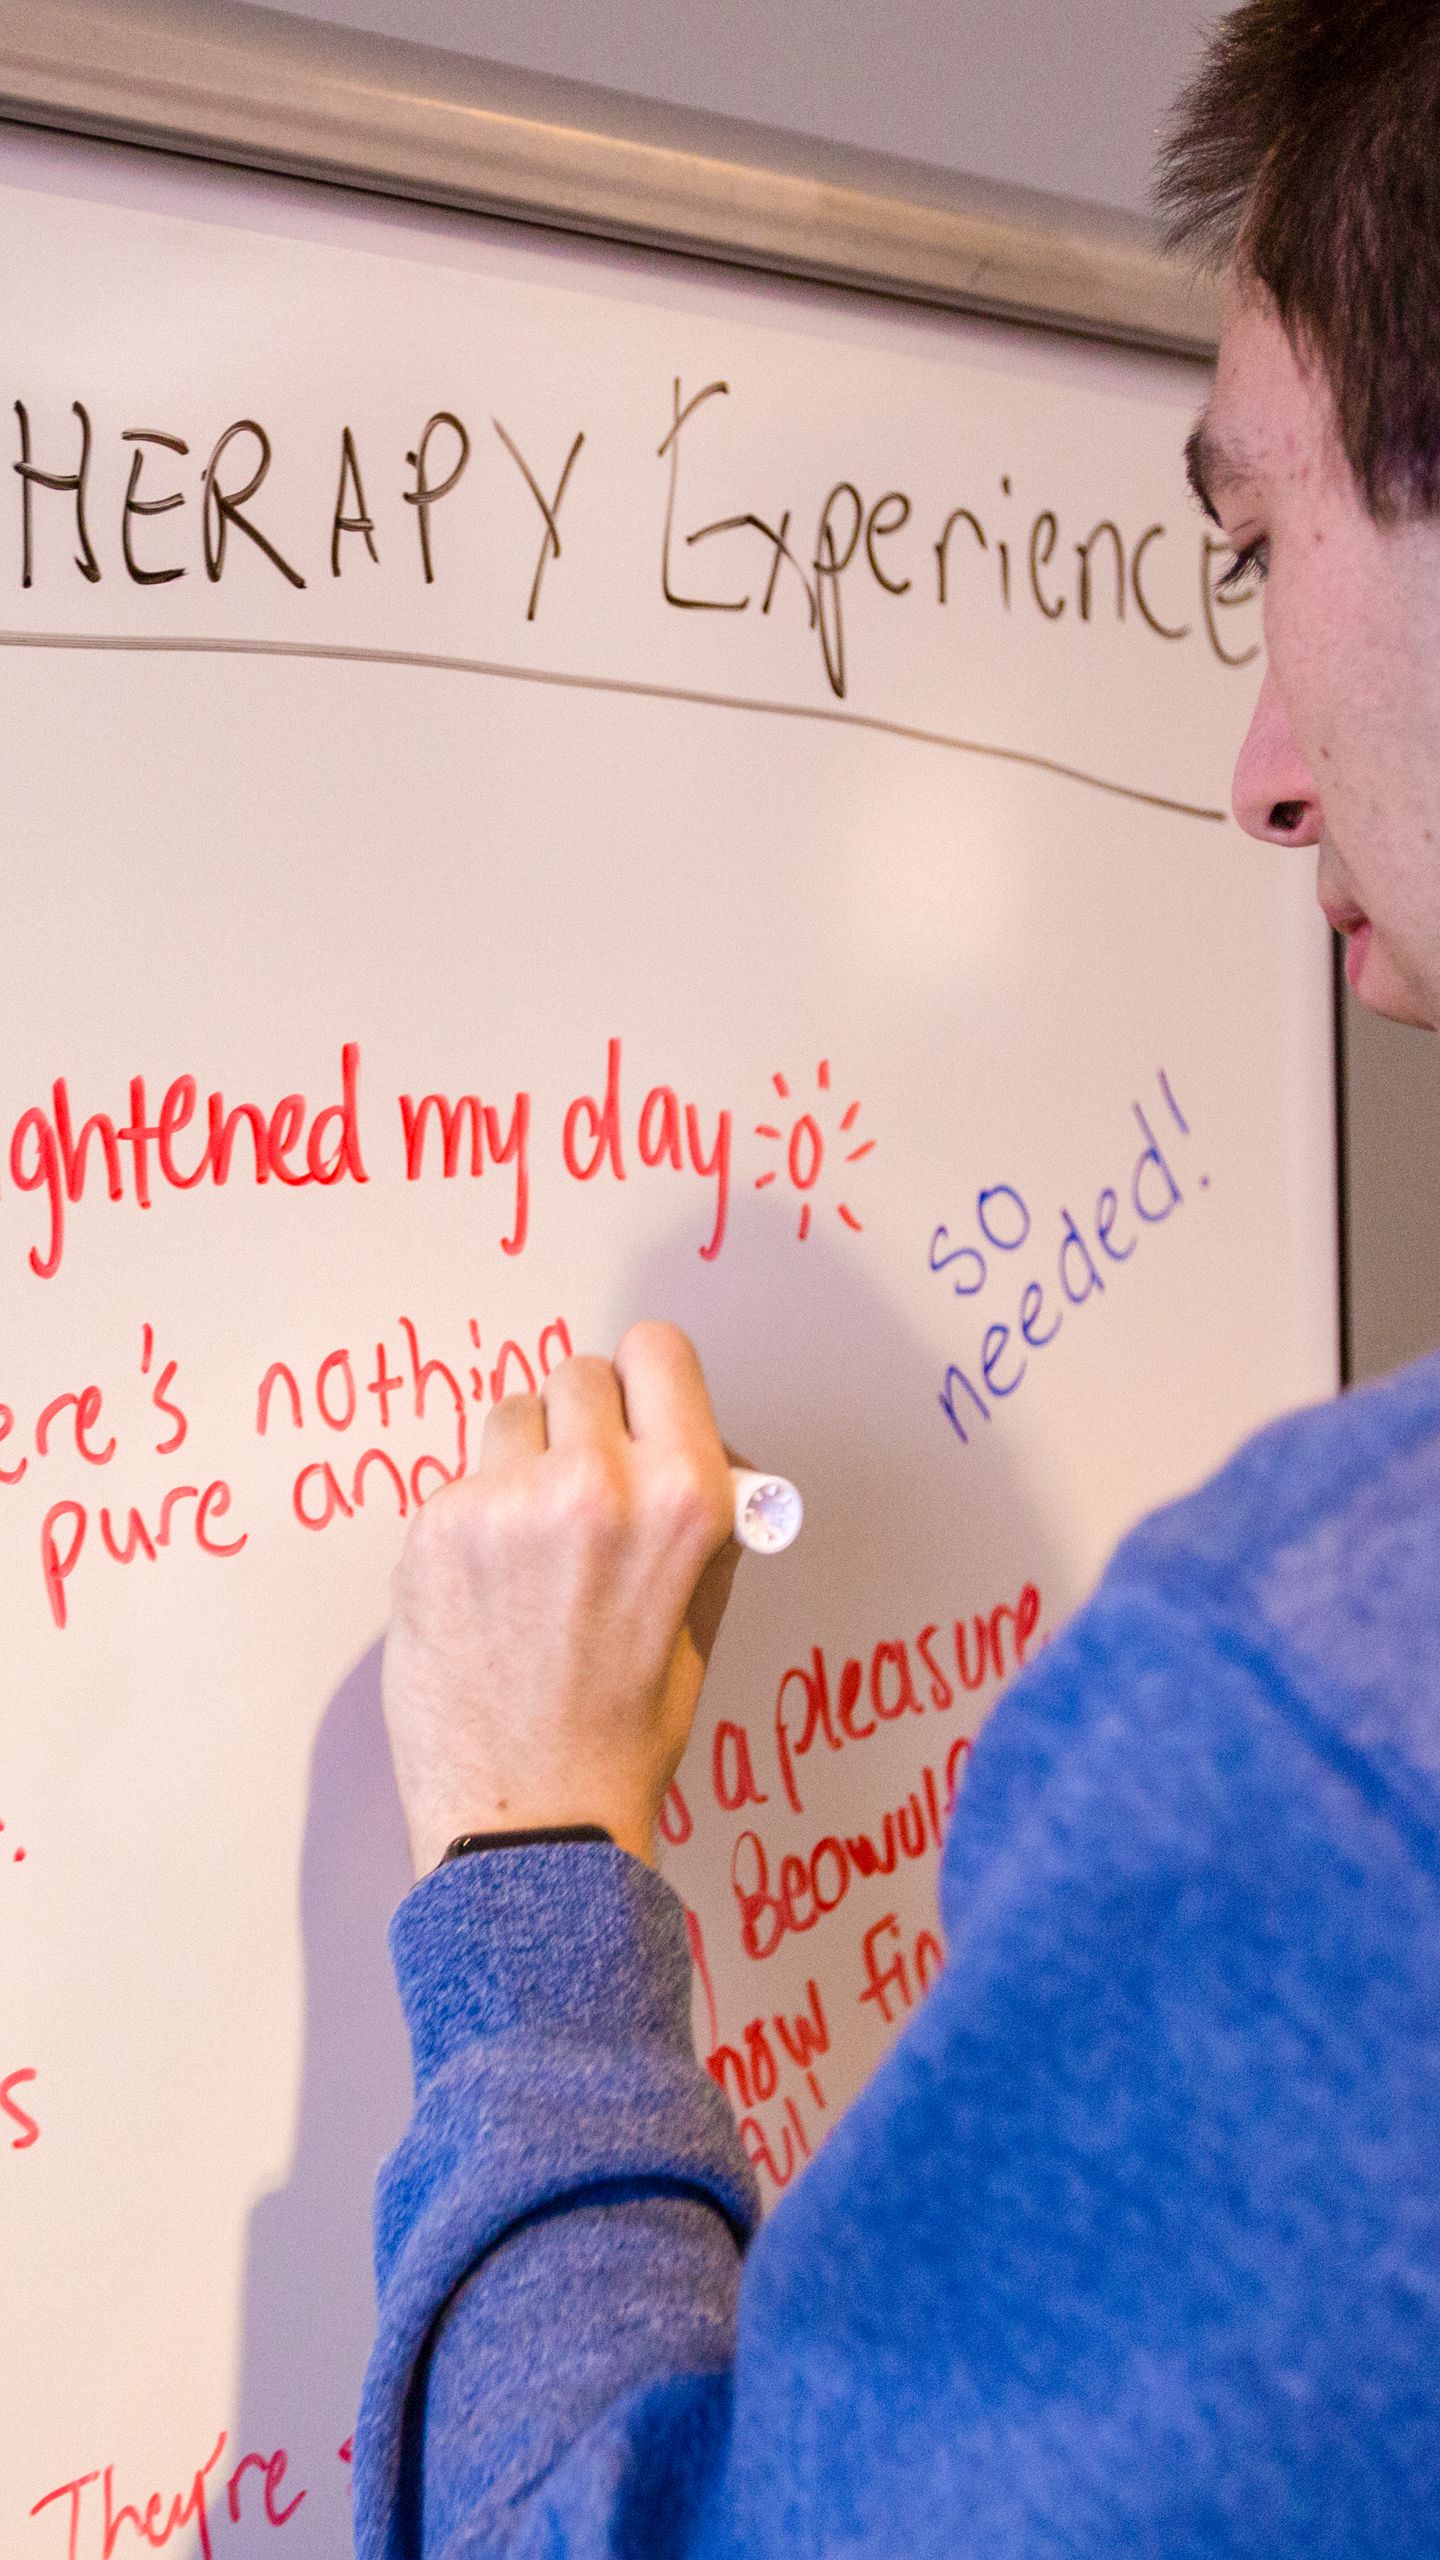 HERAPY Experience
ghtened my day
so
needed!
ere's nothing
pure and
a pleasure
Beowulf
now fin
s
They're